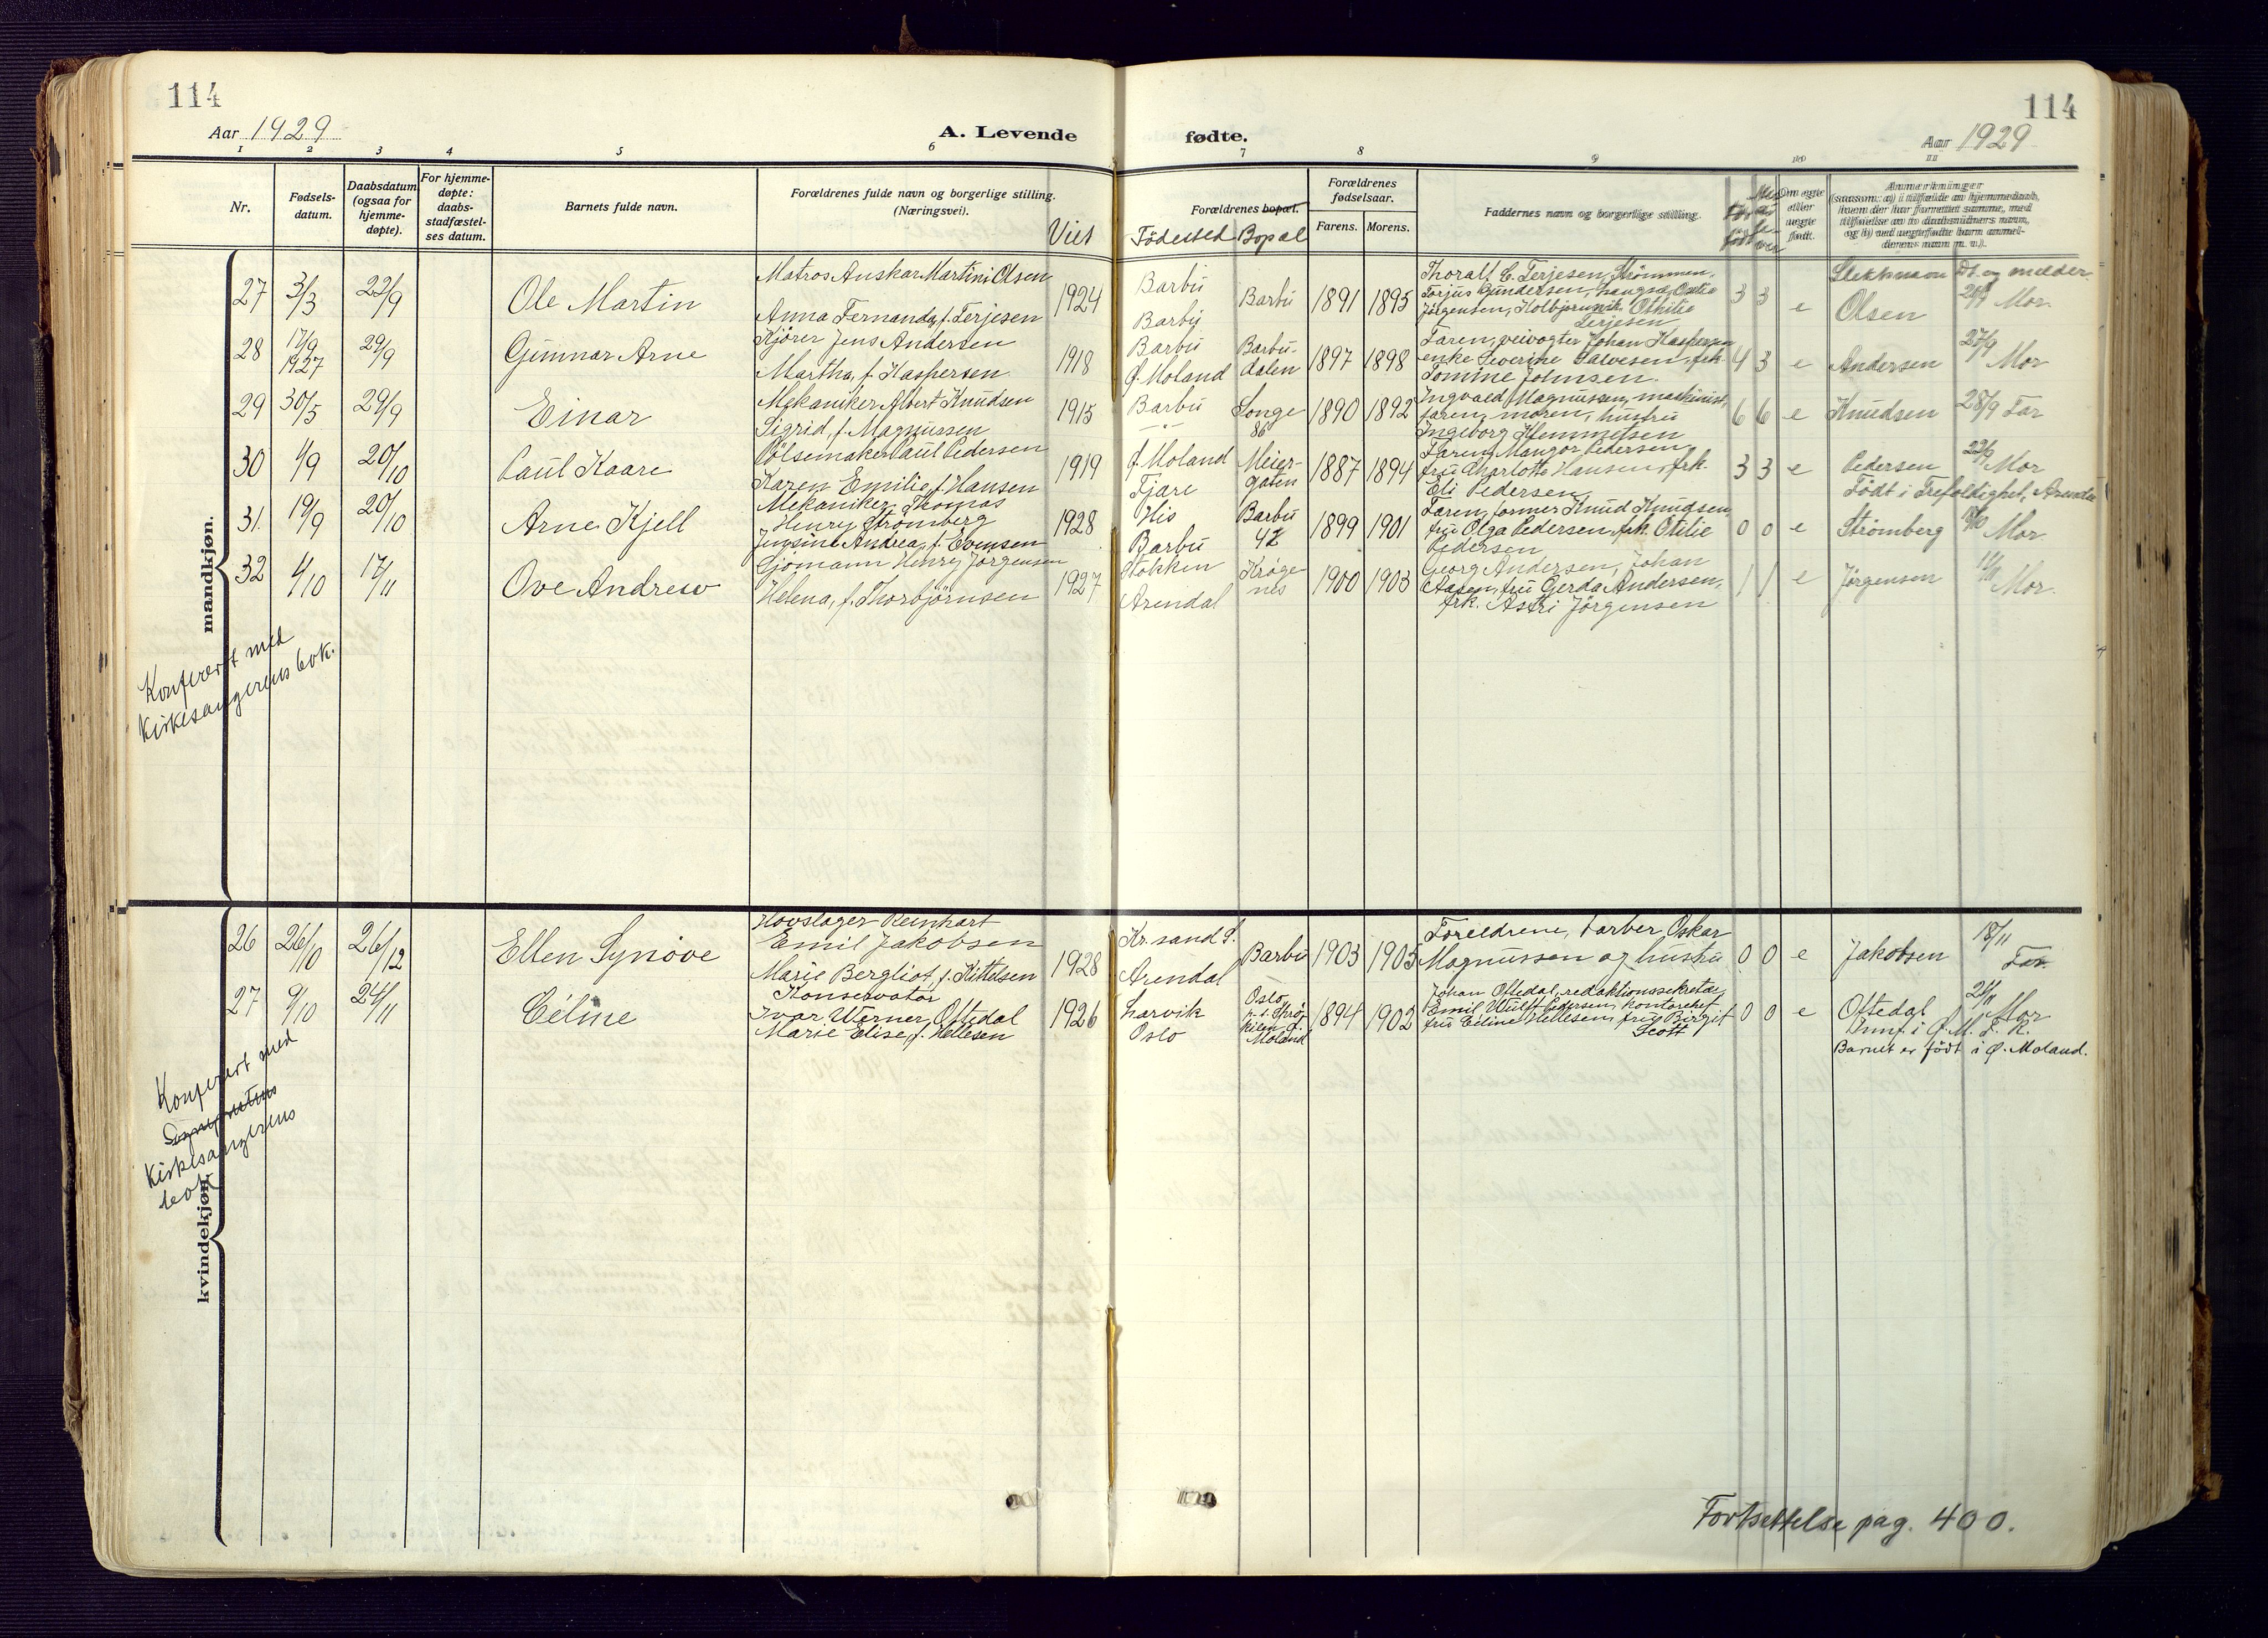 114
114
Aar 1929
A. Levende
fødte.
Aar 1929
1 2 3 4 5 6 7 8 9 10 11
Nr.
Fødsels-
datum.
Daabsdatum
(ogsaa for
hjemme-
døpte).
For hjemme-
døpte:
daabs-
stadfæstel-
ses datum.
Barnets fulde navn.
Forældrenes fulde navn og borgerlige stilling.
(Næringsvei).
Viet
Forældrenes bopæl.
Födested Bopæl
Forældrenes
fødselsaar.
Farens. Morens.
Faddernes navn og borgerlige stilling.
Om ægte
eller
uægte
født.
Anmerkninger
Slektsnavn Dt. og melder
mandkjøn.
27 3/3 22/9 Ole Martin
Matros Anskar Martini Olsen
Anna Fernanda, f. Terjesen
1924
Barbu
Barbu
Barbu
1891 1895
Thoralf C. Terjesen, Strømmen,
Torjus Gundersen, Langsæ, Otilie
Jörgensen, Kolbjørnsvik, Othilie
Terjesen
3 3 e Olsen
Mor.
28 17/9
1927
29/9 Gunnar Arne
Kjörer Jens Andersen
Martha, f. Kaspersen
1918
Barbu
Ø. Moland
Barbu-
dalen
1897 1898
Faren, veivogter Johan Kaspersen
enke Severine Salvesen, frk.
Tomine Johnsen.
4 3 e Andersen 27/9
Mor
29 30/5 29/9 Einar
Mekaniker Albert Knudsen
Sigrid, f. Magnussen
1915
Barbu
— " —
Songe
86
1890 1892
Ingvald Magnussen, maskinist,
faren, moren, hustru
Ingeborg Hemmetsen
6 6 e Knudsen 28/9 Far
30 4/9 20/10 Paul Kaare
Pölsemaker Paul Pedersen
Karen Emilie, f. Hansen
1919
Ø. Moland
Tjøre
Meier-
gaten
1887 1894
Faren, Mangor Pedersen,
fru Charlotte Hansen, frk.
Eli Pedersen
3 3 e Pedersen Mor
Født i Trefoldighet, Arendal
31. 19/9 20/10 Arne Kjell
Mekaniker Thomas
Henry Strømberg
Jensine Andrea, f. Evensen
1928
His
Barbu
Barbu
42
1899 1901
Faren, former Knud Knudsen,
fru Olga Pedersen, frk. Otilie
Pedersen
0 0 e Strömberg
Mor
32 4/10 17/11 Ove Andrew
Sjömann Henry Jörgensen
Helena, f. Thorbjörnsen
1927
Stokken
Arendal
Kröge
nes
1900 1903
Georg Andersen, Johan
Aasen, fru Gerda Andersen,
frk. Astri Jörgensen
1 1 e Jörgensen
Mor.
Konferert med
Kirkesangerens bok.
kvindekjøn.
26 26/10 26/12 Ellen Synöve
Hovslager Reinhart
Emil Jakobsen
Marie Bergliot, f. Kittelsen
1928
Kr.sand S.
Arendal
Barbu
1903 1905
Foreldrene, barber Oskar
Magnussen og hustru
0 0 e Jakobsen 18/11
Far
27 9/10 24/11 Céline
Konservator
Ivar Werner Oftedal
Marie Elise, f. Hellesen
1926
Larvik
Oslo
Oslo
Moland
1894 1902
Johan Oftedal, redaktionssekretær
Emil Wulff Pedersen, kontorchef
fru Céline Hellesen, fru Birgit
Scott
0 0 e Oftedal 21/11
Mor
Innf. i Ø. M. L. K.
Barnet er födt i Ø. Moland.
Konferert med
Kirkesangerens
bok
Fortsettelse pag. 400.